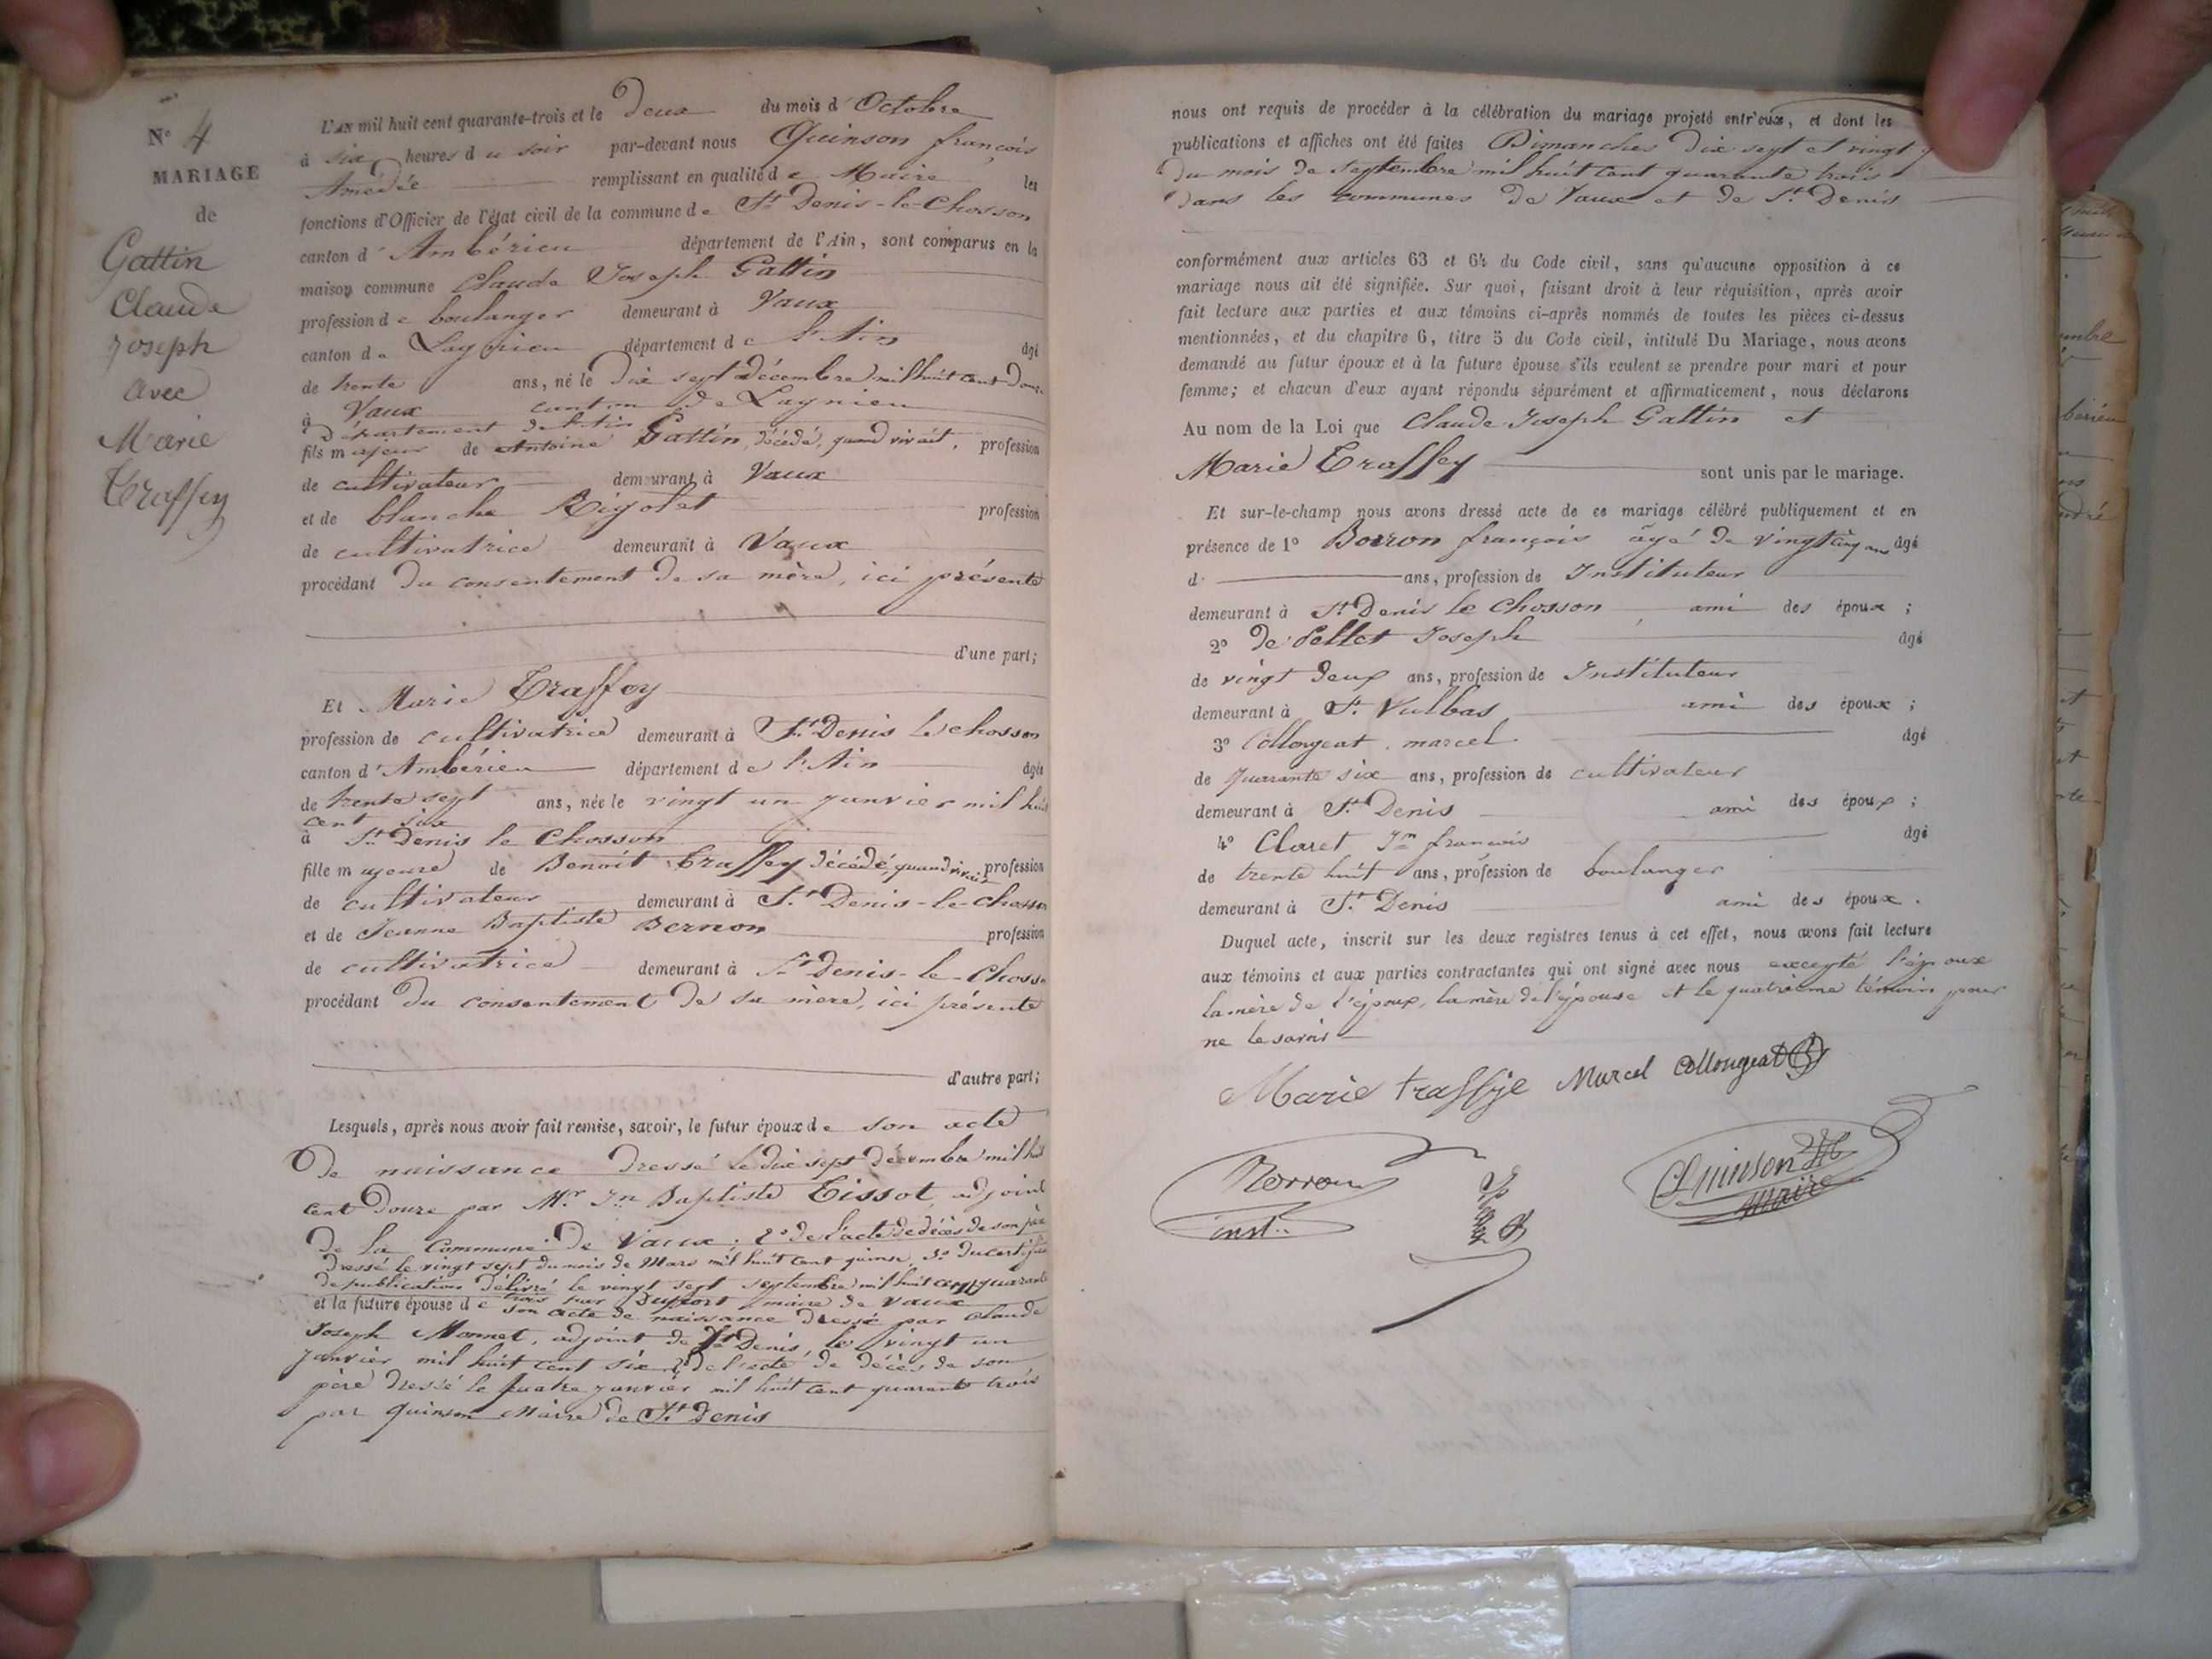 N° 4
MARIAGE
de
Gattin
Claude
Joseph
avec
Marie
Traffey
L'AN mil huit cent quarante-trois et le deux du mois d'Octobre
à six heures du soir par-devant nous Quinson françois
Amédée remplissant en qualité de Maire les
fonctions d'Officier de l'état civil de la commune de St Denis-le-Chosson
canton d'Ambérieu département de l'Ain, sont comparus en la
maison commune Claude Joseph Gattin
profession de boulanger demeurant à Vaux
canton de Lagnieu département de l'Ain âgé
de trente ans, né le dix sept décembre mil huit cent douze
à Vaux canton de Lagnieu
Département de l'Ain
fils majeur de Antoine Gattin, décédé, quand vivait, profession
de cultivateur demeurant à Vaux
et de blanche Rigolet profession
de cultivatrice demeurant à Vaux
procédant du consentement de sa mère, ici présente
d'une part;
Et Marie Traffey
profession de cultivatrice demeurant à St Denis le chosson
canton d'Ambérieu département de l'Ain âgée
de trente sept ans, née le vingt un janvier mil huit
cent six
à St Denis le Chosson
fille majeure de Benoit Traffey décédé, quand vivait profession
de cultivateur demeurant à St Denis-le-Chosson
et de Jeanne Baptiste Bernon profession
de cultivatrice demeurant à St Denis-le-Chosson
procédant du consentement de sa mère, ici présente
d'autre part;
Lesquels, après nous avoir fait remise, savoir, le futur époux de son acte
de naissance dressé le dix sept décembre mil huit
cent douze par Mr Jn Baptiste Tissot, adjoint
de la Commune de Vaux; 2° de l'acte de décès de son père
dressé le vingt sept du mois de Mars mil huit cent quinze, 3° du certificat
de publication délivré le vingt sept septembre mil huit cent quarante
trois par Duport maire de Vaux
et la future épouse de son acte de naissance dressé par Claude
Joseph Monnet, adjoint de St Denis, le vingt un
janvier mil huit cent six, 2° de l'acte de décès de son
père dressé le quatre janvier mil huit cent quarante trois
par Quinson Maire de St Denis
nous ont requis de procéder à la célébration du mariage projeté entr'eux, et dont les
publications et affiches ont été faites Dimanches dix sept et vingt
du mois de septembre mil huit cent quarante trois
dans les communes de Vaux et de St Denis
conformément aux articles 63 et 64 du Code civil, sans qu'aucune opposition à ce
mariage nous ait été signifiée. Sur quoi, faisant droit à leur réquisition, après avoir
fait lecture aux parties et aux témoins ci-après nommés de toutes les pièces ci-dessus
mentionnées, et du chapitre 6, titre 5 du Code civil, intitulé Du Mariage, nous avons
demandé au futur époux et à la future épouse s'ils veulent se prendre pour mari et pour
femme; et chacun d'eux ayant répondu séparément et affirmativement, nous déclarons
Au nom de la Loi que Claude Joseph Gattin et
Marie Traffey sont unis par le mariage.
Et sur-le-champ nous avons dressé acte de ce mariage célébré publiquement et en
présence de 1° Borron françois âgé de vingt cinq ans âgé
d ans, profession de Instituteur
demeurant à St Denis le Chosson, ami des époux;
2° de Pellet Joseph âgé
de vingt deux ans, profession de Instituteur
demeurant à St Vulbas ami des époux;
3° Collongeat marcel âgé
de quarante six ans, profession de cultivateur
demeurant à St Denis ami des époux;
4° Claret Jn françois âgé
de trente huit ans, profession de boulanger
demeurant à St Denis ami des époux.
Duquel acte, inscrit sur les deux registres tenus à cet effet, nous avons fait lecture
aux témoins et aux parties contractantes qui ont signé avec nous excepté l'époux
la mère de l'époux, la mère de l'épouse et le quatrième témoin pour
ne le savoir
Marie traffye Marcel Collongeat
Borron
inst..
Quinson
maire